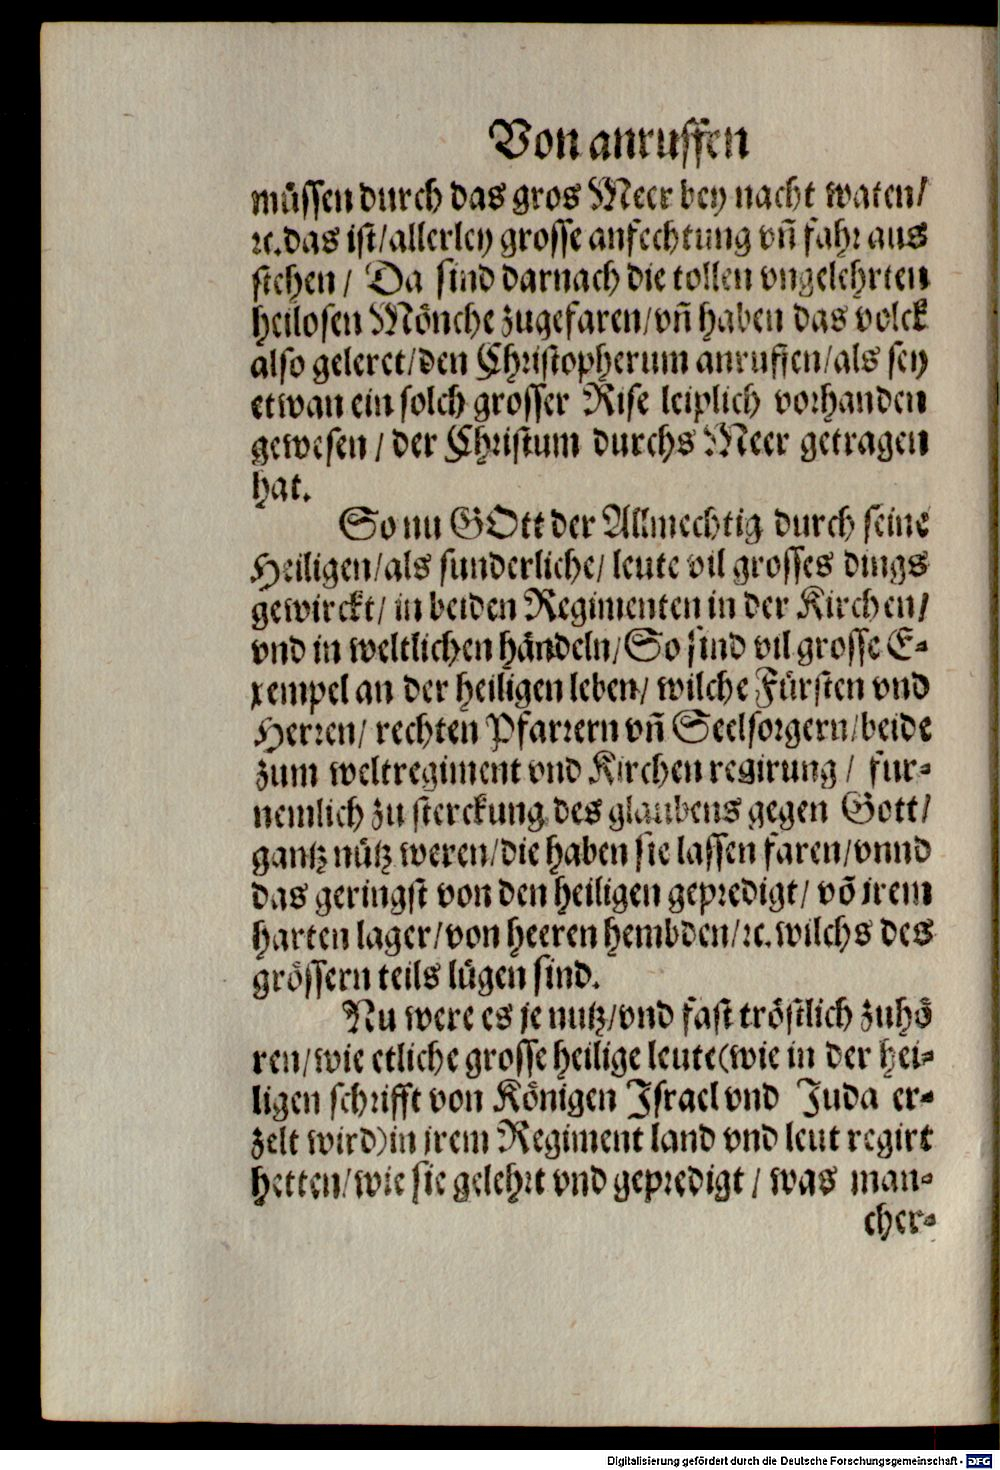 Von anruffen
müssen durch das gros Meer bey nacht waten/
ꝛc. das ist/allerley grosse anfechtung vñ fahr aus
stehen / Da sind darnach die tollen vngelehrten
heilosen Mönche zugefaren/vñ haben das volck
also geleret/den Christopherum anruffen/als sey
etwan ein solch grosser Rise leiplich vorhanden
gewesen / der Christum durchs Meer getragen
hat.
So nu GOtt der Allmechtig durch seine
Heiligen/als sunderliche/ leute vil grosses dings
gewirckt/ in beiden Regimenten in der Kirchen/
vnd in weltlichen händeln/So sind vil grosse E-
xempel an der heiligen leben/ wilche Fürsten vnd
Herren/ rechten Pfarrern vñ Seelsorgern/beide
zum weltregiment vnd Kirchen regirung / fur-
nemlich zu sterckung des glaubens gegen Gott/
gantz nütz weren/die haben sie lassen faren/vnnd
das geringst von den heiligen gepredigt/ võ jrem
harten lager/von heeren hembden/ꝛc. wilchs des
grössern teils lügen sind.
Nu were es je nutz/vnd fast tröstlich zuhö
ren/wie etliche grosse heilige leute(wie in der hei-
ligen schrifft von Königen Israel vnd Juda er-
zelt wird)in jrem Regiment land vnd leut regirt
hetten/wie sie gelehrt vnd gepredigt / was man-
cher-
Digitalisierung gefördert durch die Deutsche Forschungsgemeinschaft - DFG